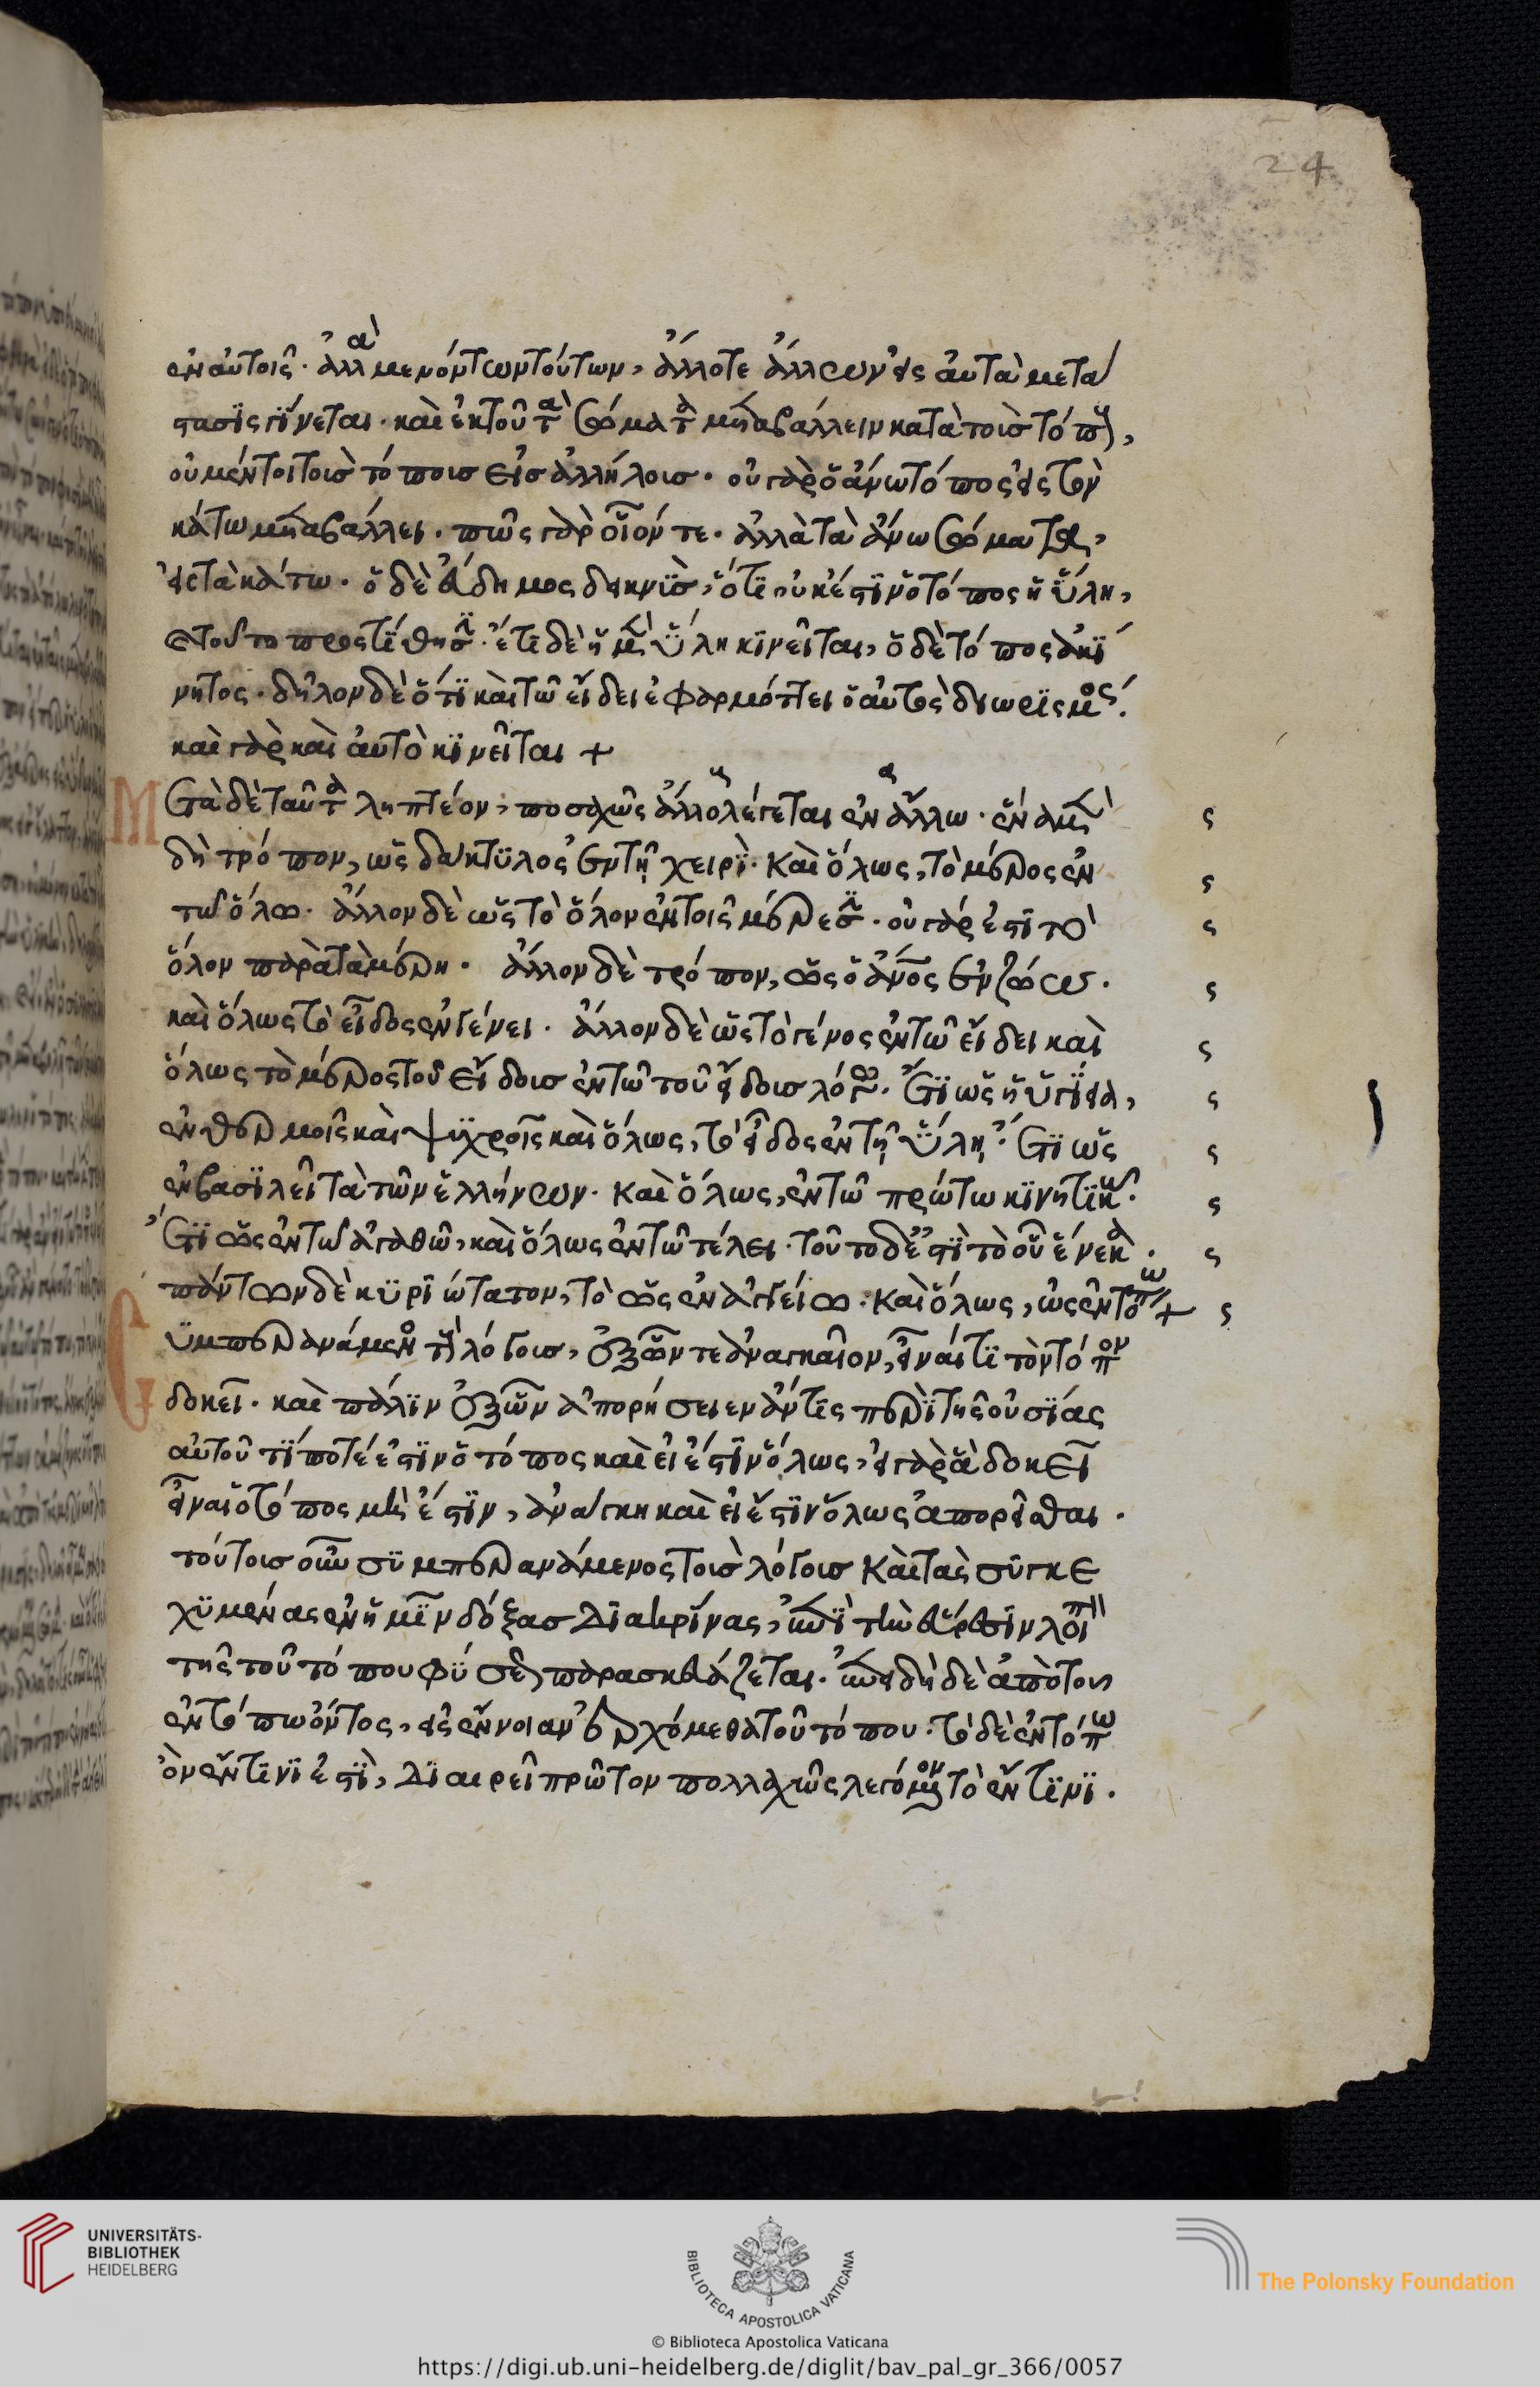 24
ἐν αὐτοῖς· ἀλλὰ μενόντων τούτων, ἄλλοτε ἄλλων εἰς αὐτὰ μετά
στασις γίνεται· καὶ ἐκ τοῦ τὰ σώματα μεταβάλλειν κατὰ τοὺς τόπους,
οὐ μέντοι τοὺς τόπους εἰς ἀλλήλους· οὐ γὰρ ὁ ἄνω τόπος εἰς τὸν
κάτω μεταβάλλει· πῶς γὰρ οἷόν τε· ἀλλὰ τὰ ἄνω σώματα,
εἰς τὰ κάτω· ὁ δὲ Εὔδημος δεικνὺς, ὅτι οὐκ ἔστιν ὁ τόπος ἡ ὕλη,
τοῦτο προστίθησιν· ἔτι δὲ ἡ μὲν ὕλη κινεῖται, ὁ δὲ τόπος ἀκί
νητος· δῆλον δὲ ὅτι καὶ τῶ εἴδει ἐφαρμόττει ὁ αὐτὸς διωρισμός·
καὶ γὰρ καὶ αὐτὸ κινεῖται +
Μετὰ δὲ ταῦτα ληπτέον, ποσαχῶς ἄλλο λέγεται ἐν ἄλλω· ἕνα μὲν
δὴ τρόπον, ὡς δάκτυλος ἐν τῇ χειρί· καὶ ὅλως, τὸ μέρος ἐν
τῷ ὅλω· ἄλλον δὲ ὡς τὸ ὅλον ἐν τοῖς μέρεσιν· οὐ γάρ ἐστι τὸ
ὅλον παρὰ τὰ μέρη· ἄλλον δὲ τρόπον, ὡς ὁ ἄνος ἐν ζώω·
καὶ ὅλως τὸ εἶδος ἐν γένει· ἄλλον δὲ ὡς τὸ γένος ἐν τῶ εἴδει καὶ
ὅλως τὸ μέρος τοῦ εἴδους ἐν τῶ τοῦ εἴδους λόγω· ἔτι ὡς ἡ ὑγίεια,
ἐν θερμοῖς καὶ ψυχροῖς καὶ ὅλως, τὸ εἶδος ἐν τῇ ὕλῃ· ἔτι ὡς
ἐν βασιλεῖ τὰ τῶν ἑλλήνων· καὶ ὅλως, ἐν τῶ πρώτω κινητικῶ·
ἔτι ὡς ἐν τῶ ἀγαθῶ, καὶ ὅλως ἐν τῶ τέλει· τοῦτο δ' ἐστὶ τὸ οὗ ἕνεκα·
πάντων δὲ κυριώτατον, τὸ ὡς ἐν ἀγγείω· καὶ ὅλως, ὡς ἐν τόπω +
Συμπεραναμένου τοὺς λόγους, ἐξ ὧν τε ἀναγκαῖον, εἶναί τι τὸν τόπον
δοκεῖ· καὶ πάλιν ἐξ ὧν ἀπορήσειεν ἄν τις περὶ τῆς οὐσίας
αὐτοῦ τί ποτέ ἐστιν ὁ τόπος καὶ εἰ ἔστιν ὅλως, εἰ γὰρ ἃ δοκεῖ
εἶναι ὁ τόπος μὴ ἔστιν, ἀνάγκη καὶ εἰ ἔστιν ὅλως ἀπορεῖσθαι·
τούτους οὖν συμπερανάμενος τοὺς λόγους καὶ τὰς συγκε
χυμένας ἐν ἡμῖν δόξας διακρίνας, ἐπὶ τὴν εὕρεσιν λοιπὸν
τῆς τοῦ τόπου φύσεως παρασκευάζεται· ἐπειδὴ δὲ ἀπὸ τοῦ
ἐν τόπω ὄντος, εἰς ἔννοιαν ἐρχόμεθα τοῦ τόπου· τὸ δὲ ἐν τόπω
ὂν ἔν τινί ἐστι, διαιρεῖ πρῶτον πολλαχῶς λεγόμενον τὸ ἔν τινι·
UNIVERSITÄTS-
BIBLIOTHEK
HEIDELBERG
BIBLIOTECA APOSTOLICA VATICANA
The Polonsky Foundation
© Biblioteca Apostolica Vaticana
https://digi.ub.uni-heidelberg.de/diglit/bav_pal_gr_366/0057